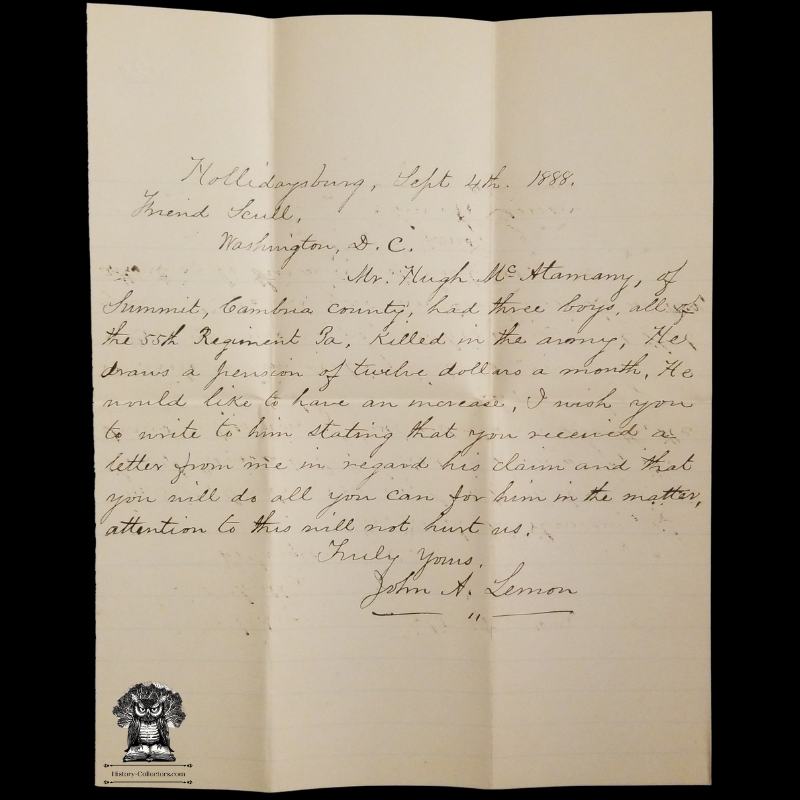 Hollidaysburg, Sept 4th. 1888.
Friend Scull,
Washington, D. C.
Mr. Hugh Mc Atamany, of
Summit, Cambria county, had three boys, all of
the 55th Regiment Pa, Killed in the army, He
draws a pension of twelve dollars a month, He
would like to have an increase, I wish you
to write to him stating that you received a
letter from me in regard his claim and that
you will do all you can for him in the matter,
attention to this will not hurt us.
Truly Yours,
John A. Lemon
History-Collectors.com